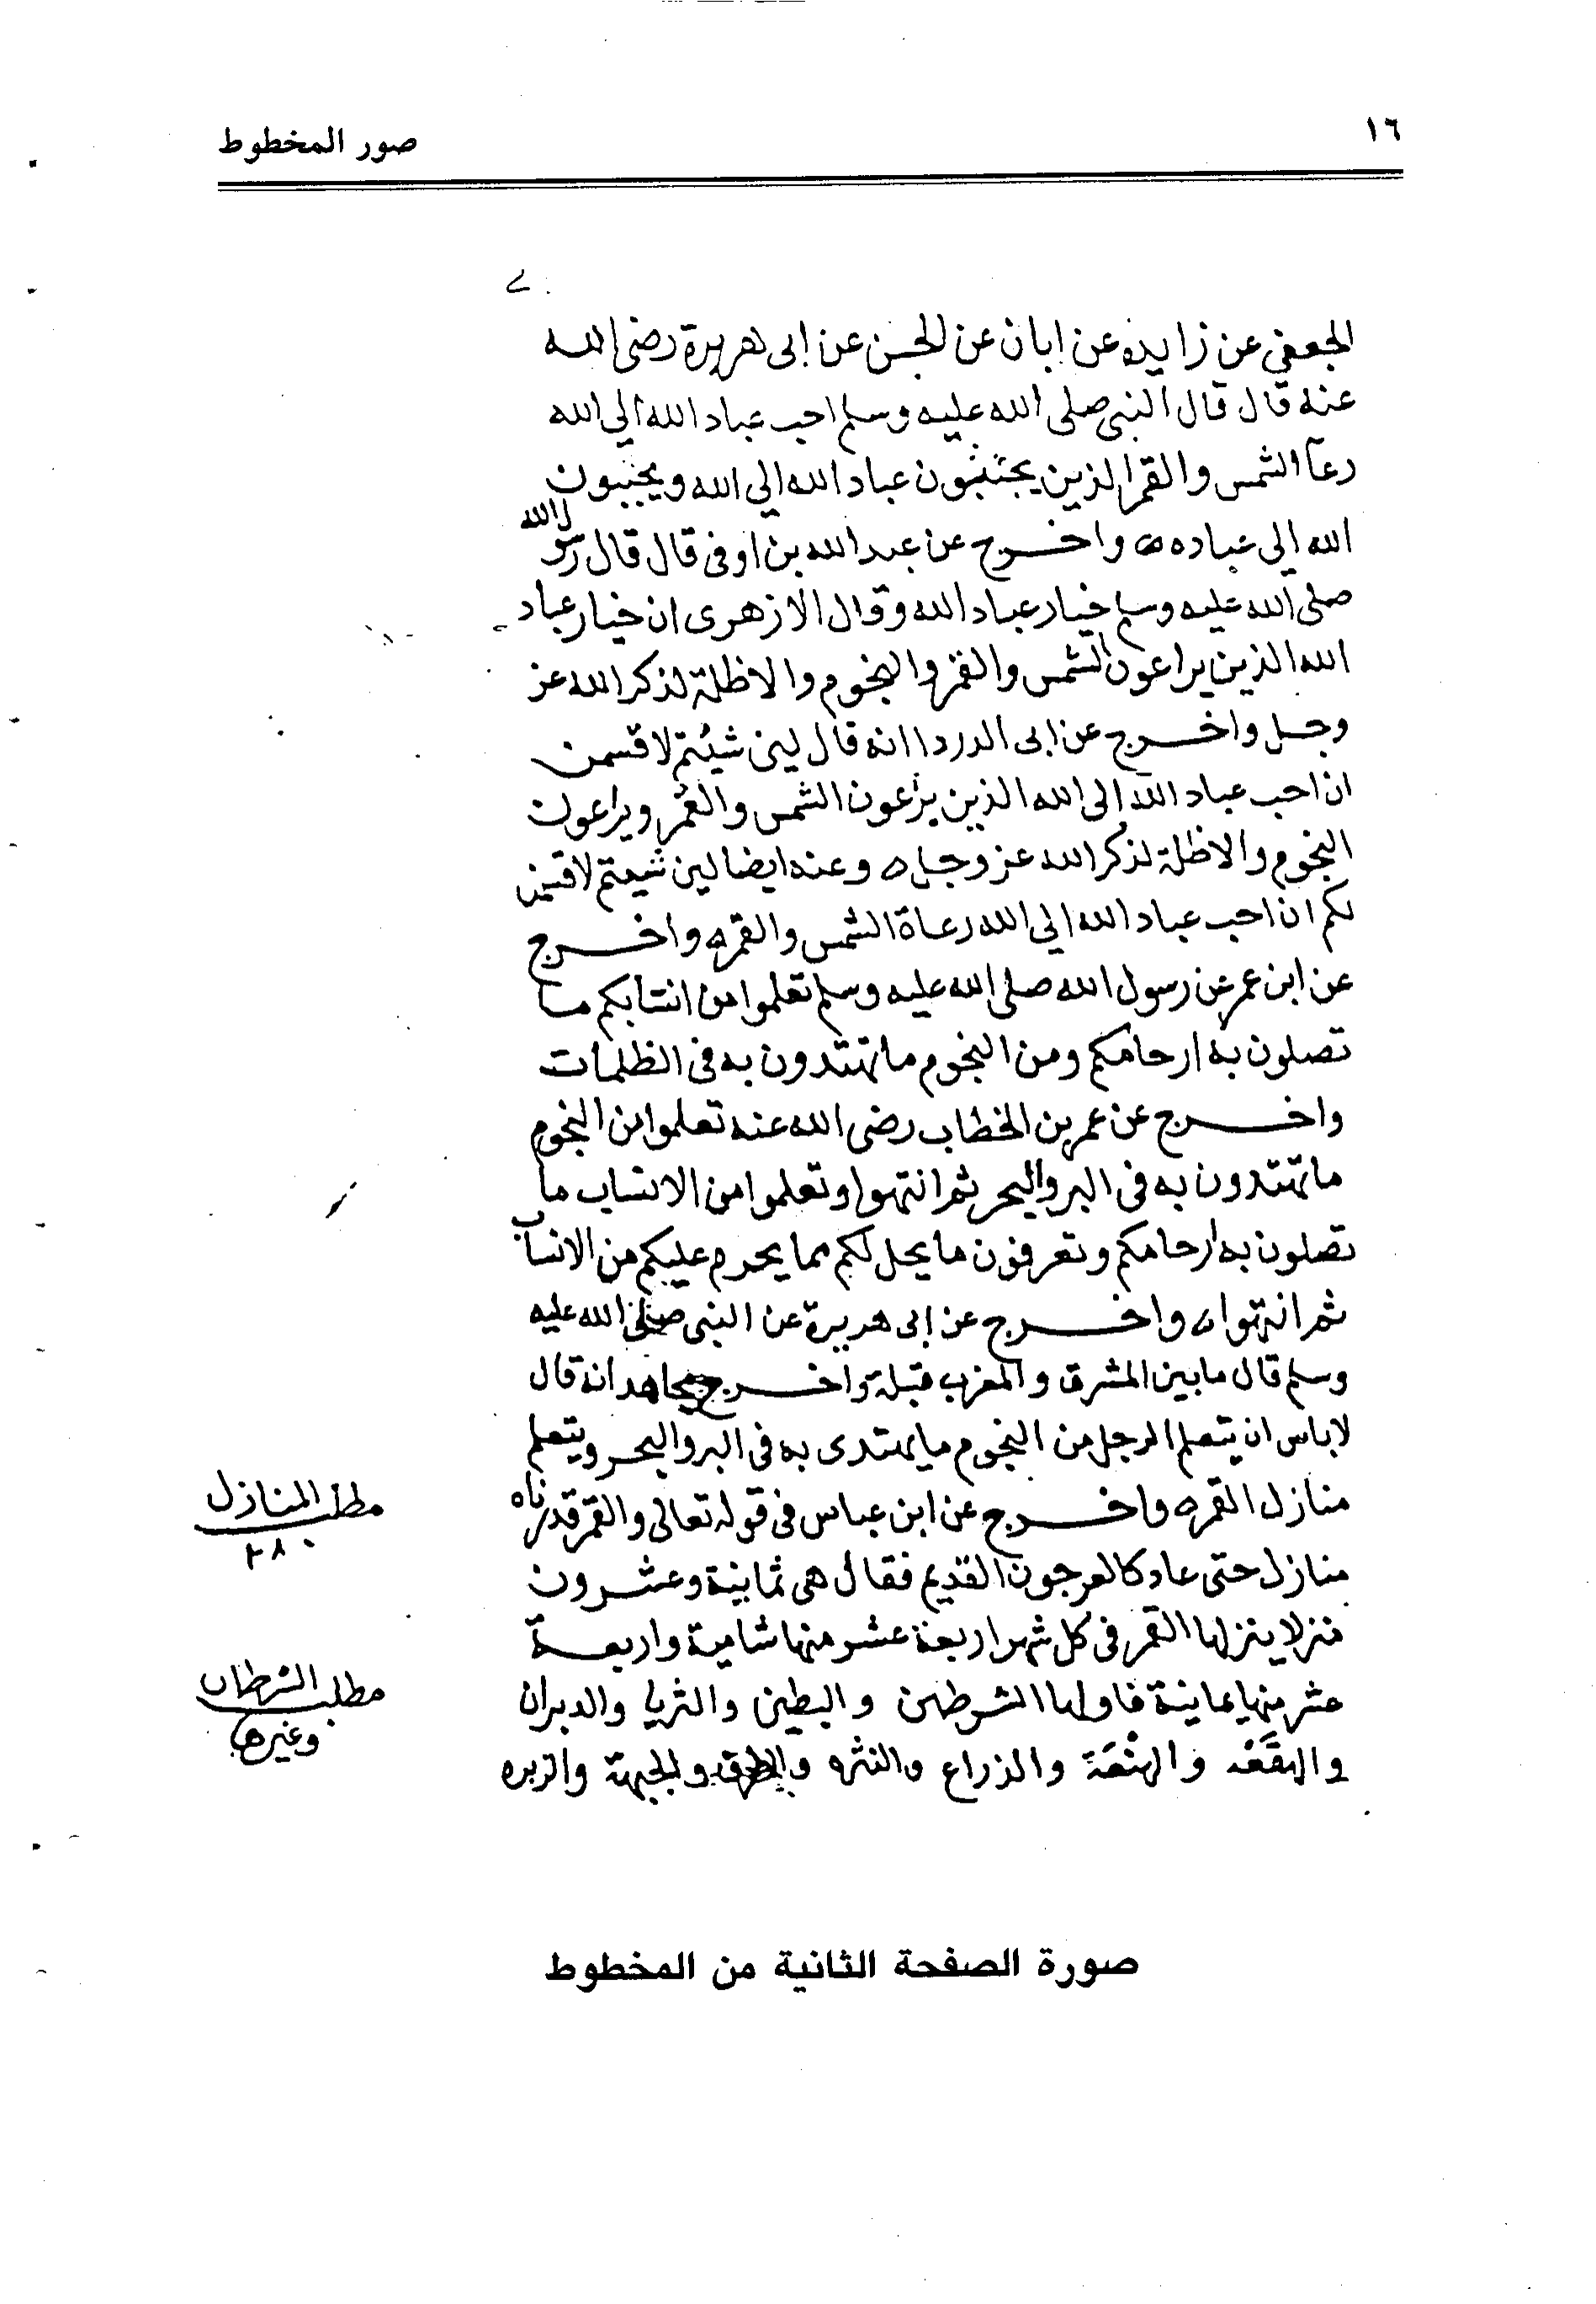 ١٦
صور المخطوط
الجعفي عن زايده عن ابان عن الحسن عن ابى هريرة رضى الله
عنه قال قال النبى صلى الله عليه وسلم احب عباد الله الي الله
رعآ الشمس والقمر الذين يحببون عباد الله الي الله ويحببون
الله الى عباده واخرج عن عبد الله بن اوفى قال قال رسول الله
صلى الله عليه وسلم خيار عباد الله وقال الازهرى ان خيار عباد
الله الذين يراعون الشمس والقمر والنجوم والاظلة لذكر الله عز
وجل واخرج عن ابى الدردا انه قال لين شيئتم لاقسمن
ان احب عباد الله الى الله الذين يراعون الشمس والقمر ويراعون
النجوم والاظلة لذكر الله عز وجل ه وعنه ايضا لين شيعتم لاقسمن
لكم ان احب عباد الله الي الله رعاة الشمس والقمر ه واخرج
عن ابن عمر عن رسول الله صلى الله عليه وسلم تعلموا من انسابكم ما
تصلون به ارحامكم ومن النجوم ما تهتدون به فى الظلمات
واخرج عن عمر بن الخطاب رضى الله عنه تعلموا من النجوم
ما تهتدون به فى البر والبحر ثم انتهوا وتعلموا من الانساب ما
تصلون به ارحامكم وتعرفون ما يحل لكم مما يحرم عليكم من الانساب
ثم انتهوا ه واخرج عن ابى هريرة عن النبى صلى الله عليه
وسلم قال ما بين المشرق والمغرب قبلة واخرج مجاهد انه قال
لاباس ان يتعلم الرجل من النجوم ما يهتدى به فى البر والبحر ويتعلم
منازل القمر ه واخرج عن ابن عباس فى قوله تعالى والقمر قدرناه
مطلب المنازل
٢٨
منازل حتى عاد كالعرجون القديم فقال هى ثمانية وعشرون
منزلا ينزلها القمر فى كل شهر اربعة عشر منها شامية واربعة
عشر منها يمانية فاولها الشرطين والبطين والثريا والدبران
مطلب الشرطان
وغيرها
والهقعه والهنعة والذراع والنثره والطرف والجبهة والزبره
صورة الصفحة الثانية من المخطوط